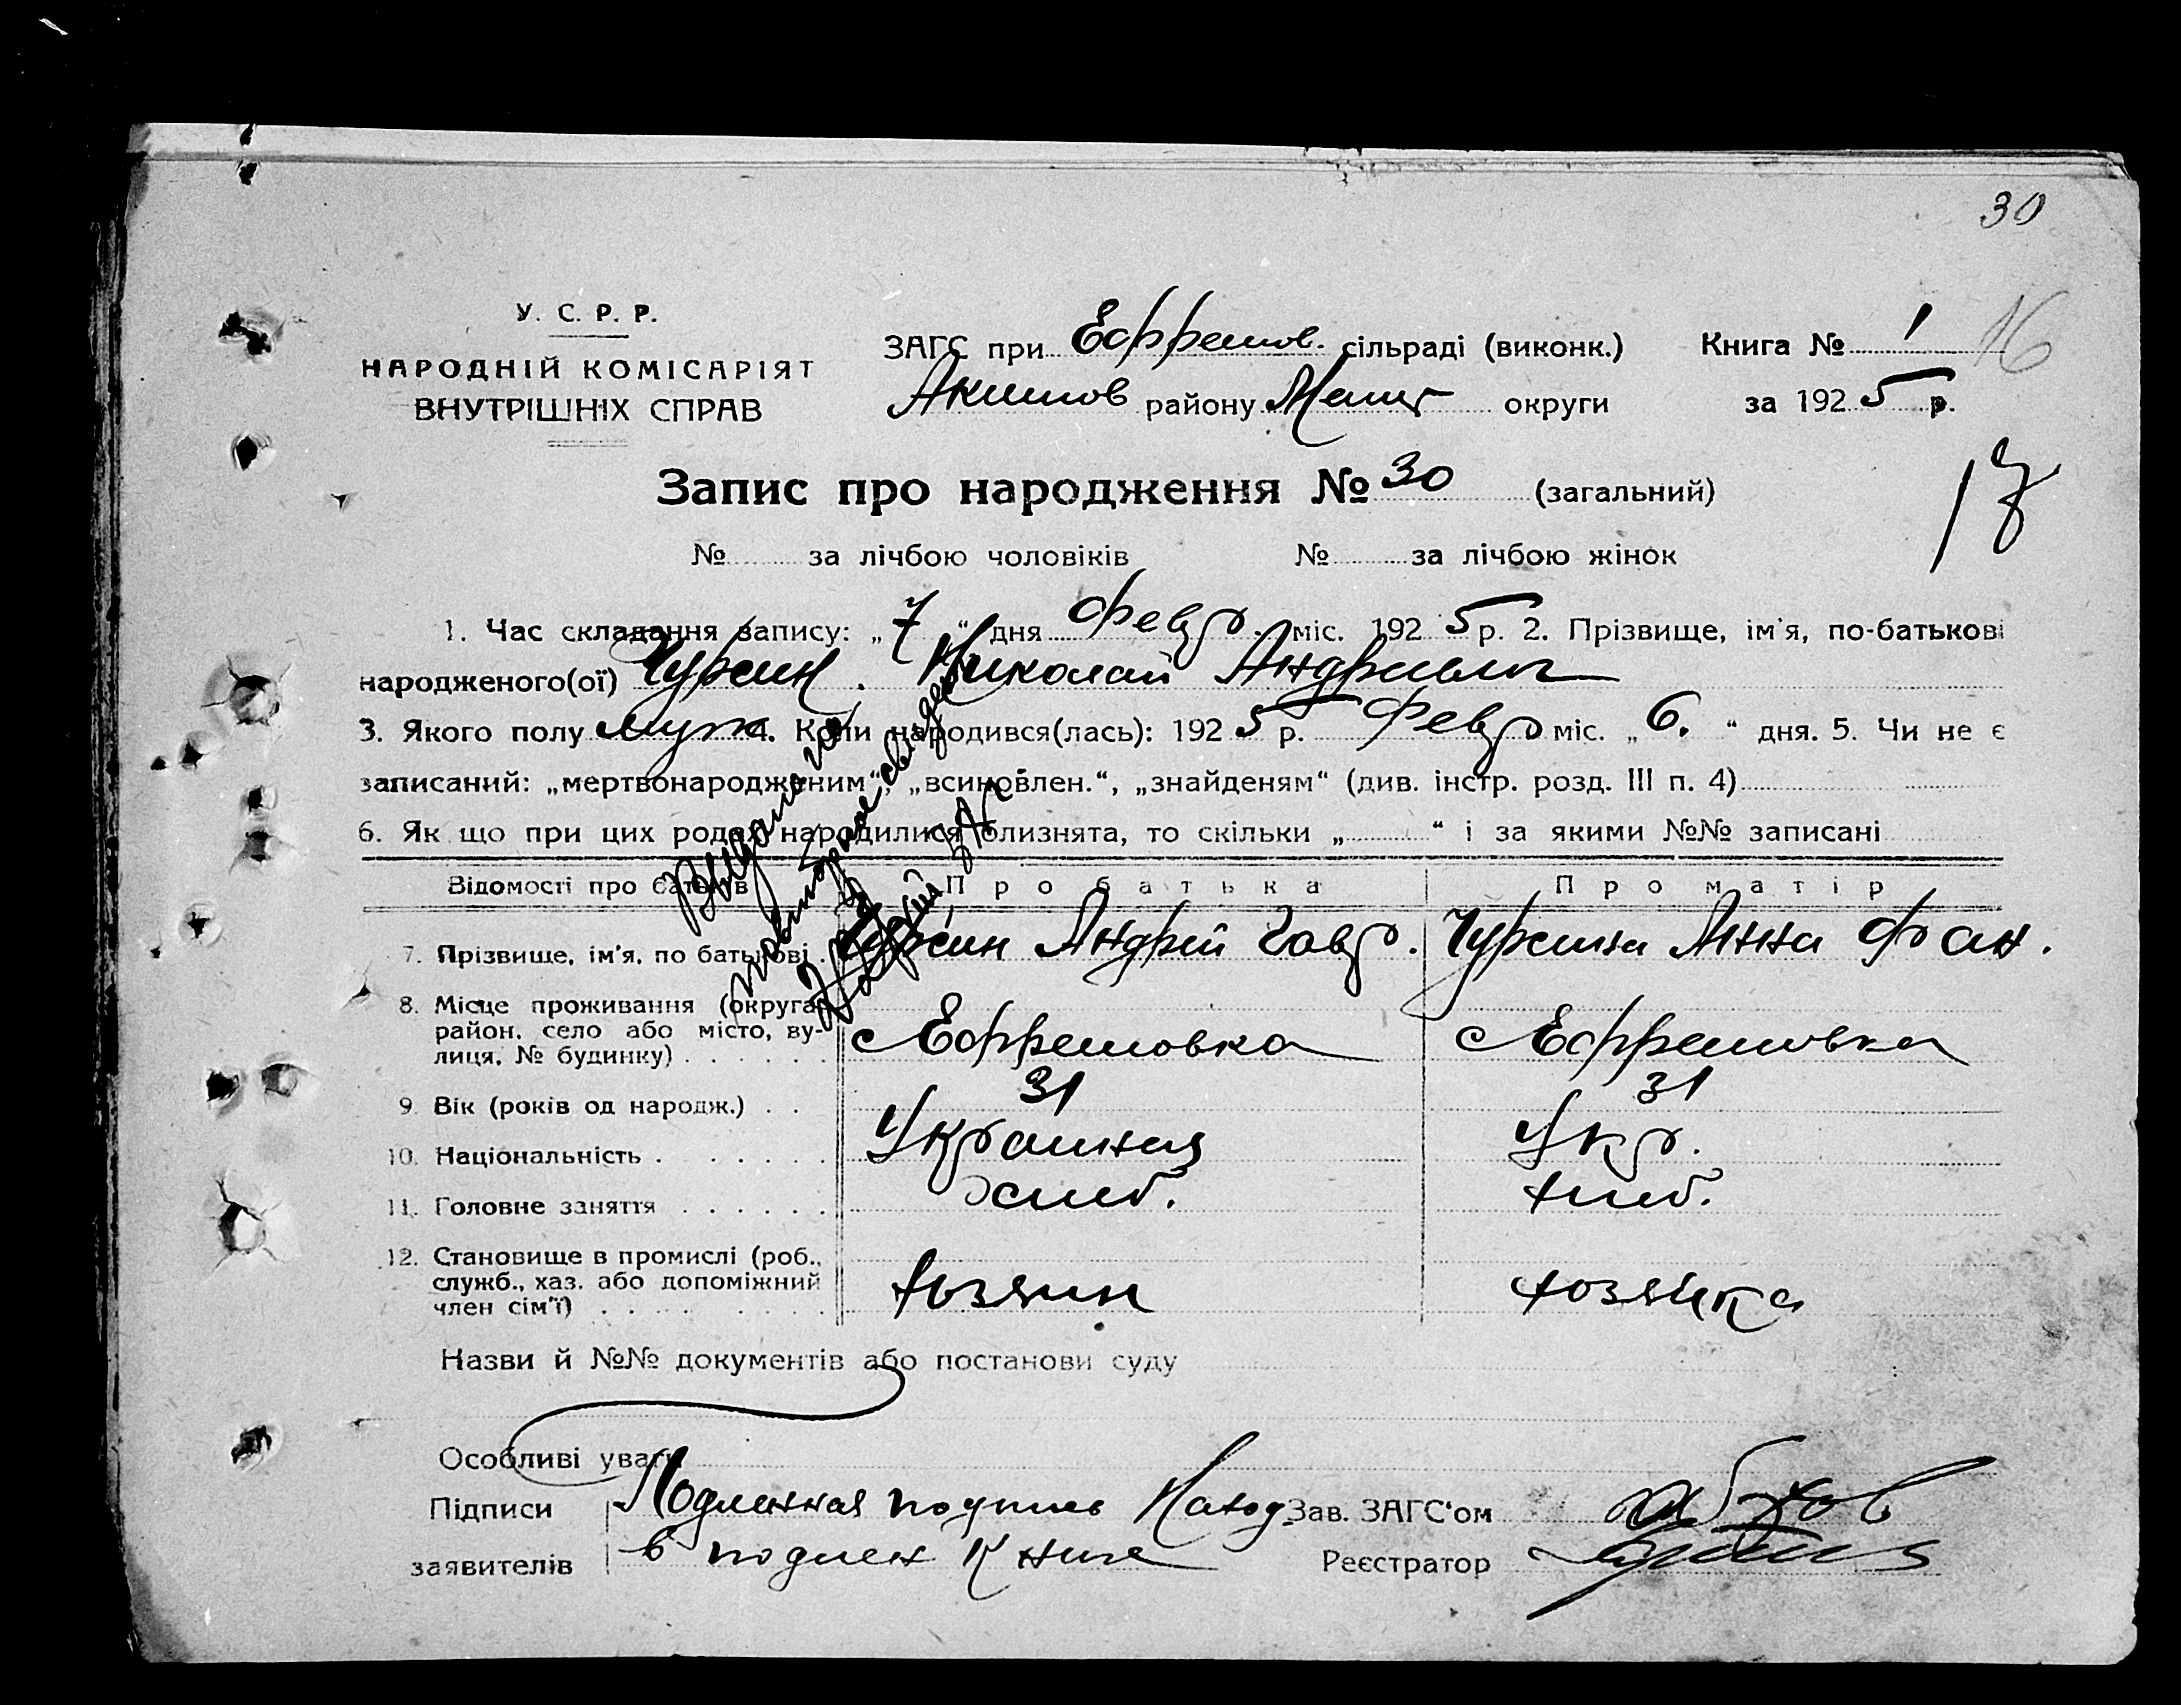 30
У. С. Р. Р.
НАРОДНІЙ КОМІСАРІЯТ
ВНУТРІШНІХ СПРАВ
ЗАГС при Ефремов. сільраді (виконк.)
Акимов району Мелит округи
Книга № 1
16
за 1925 р.
Запис про народження № 30 (загальний)
17
№ за лічбою чоловіків № за лічбою жінок
1. Час складання запису: „7“ дня Февр. міс. 1925 р. 2. Прізвище, ім'я, по-батькові
народженого(ої) Чурсин. Николай Андреевич
3. Якого полу муж. 4. Коли народився(лась): 1925 р. Февр міс. „6.“ дня. 5. Чи не є
записаний: „мертвонародженим“, „всиновлен.“, „знайденям“ (див. інстр. розд. III п. 4)
6. Як що при цих родах народилися близнята, то скільки „ “ і за якими №№ записані
Видано
повторное свидет
ЗАГС
Відомості про батьків Про батька Про матір
7. Прізвище, ім'я, по батькові . Чурсин Андрей Гавр. Чурсина Анна Фран.
8. Місце проживання (округа,
район, село або місто, ву-
лиця, № будинку) . . . . . . с Ефремовка с Ефремовка
9. Вік (років од народж.) . . 31 31
10. Національність . . . . . . Украинец Укр.
11. Головне заняття . . . . . . хлеб. хлеб.
12. Становище в промислі (роб.,
служб., хаз. або допоміжний
член сім'ї) . . . . . . . . хозяин хозяйка
Назви й №№ документів або постанови суду
Особливі уваги
Підписи Подлинная подпись наход Зав. ЗАГС'ом
заявителів в подлен книге Реєстратор